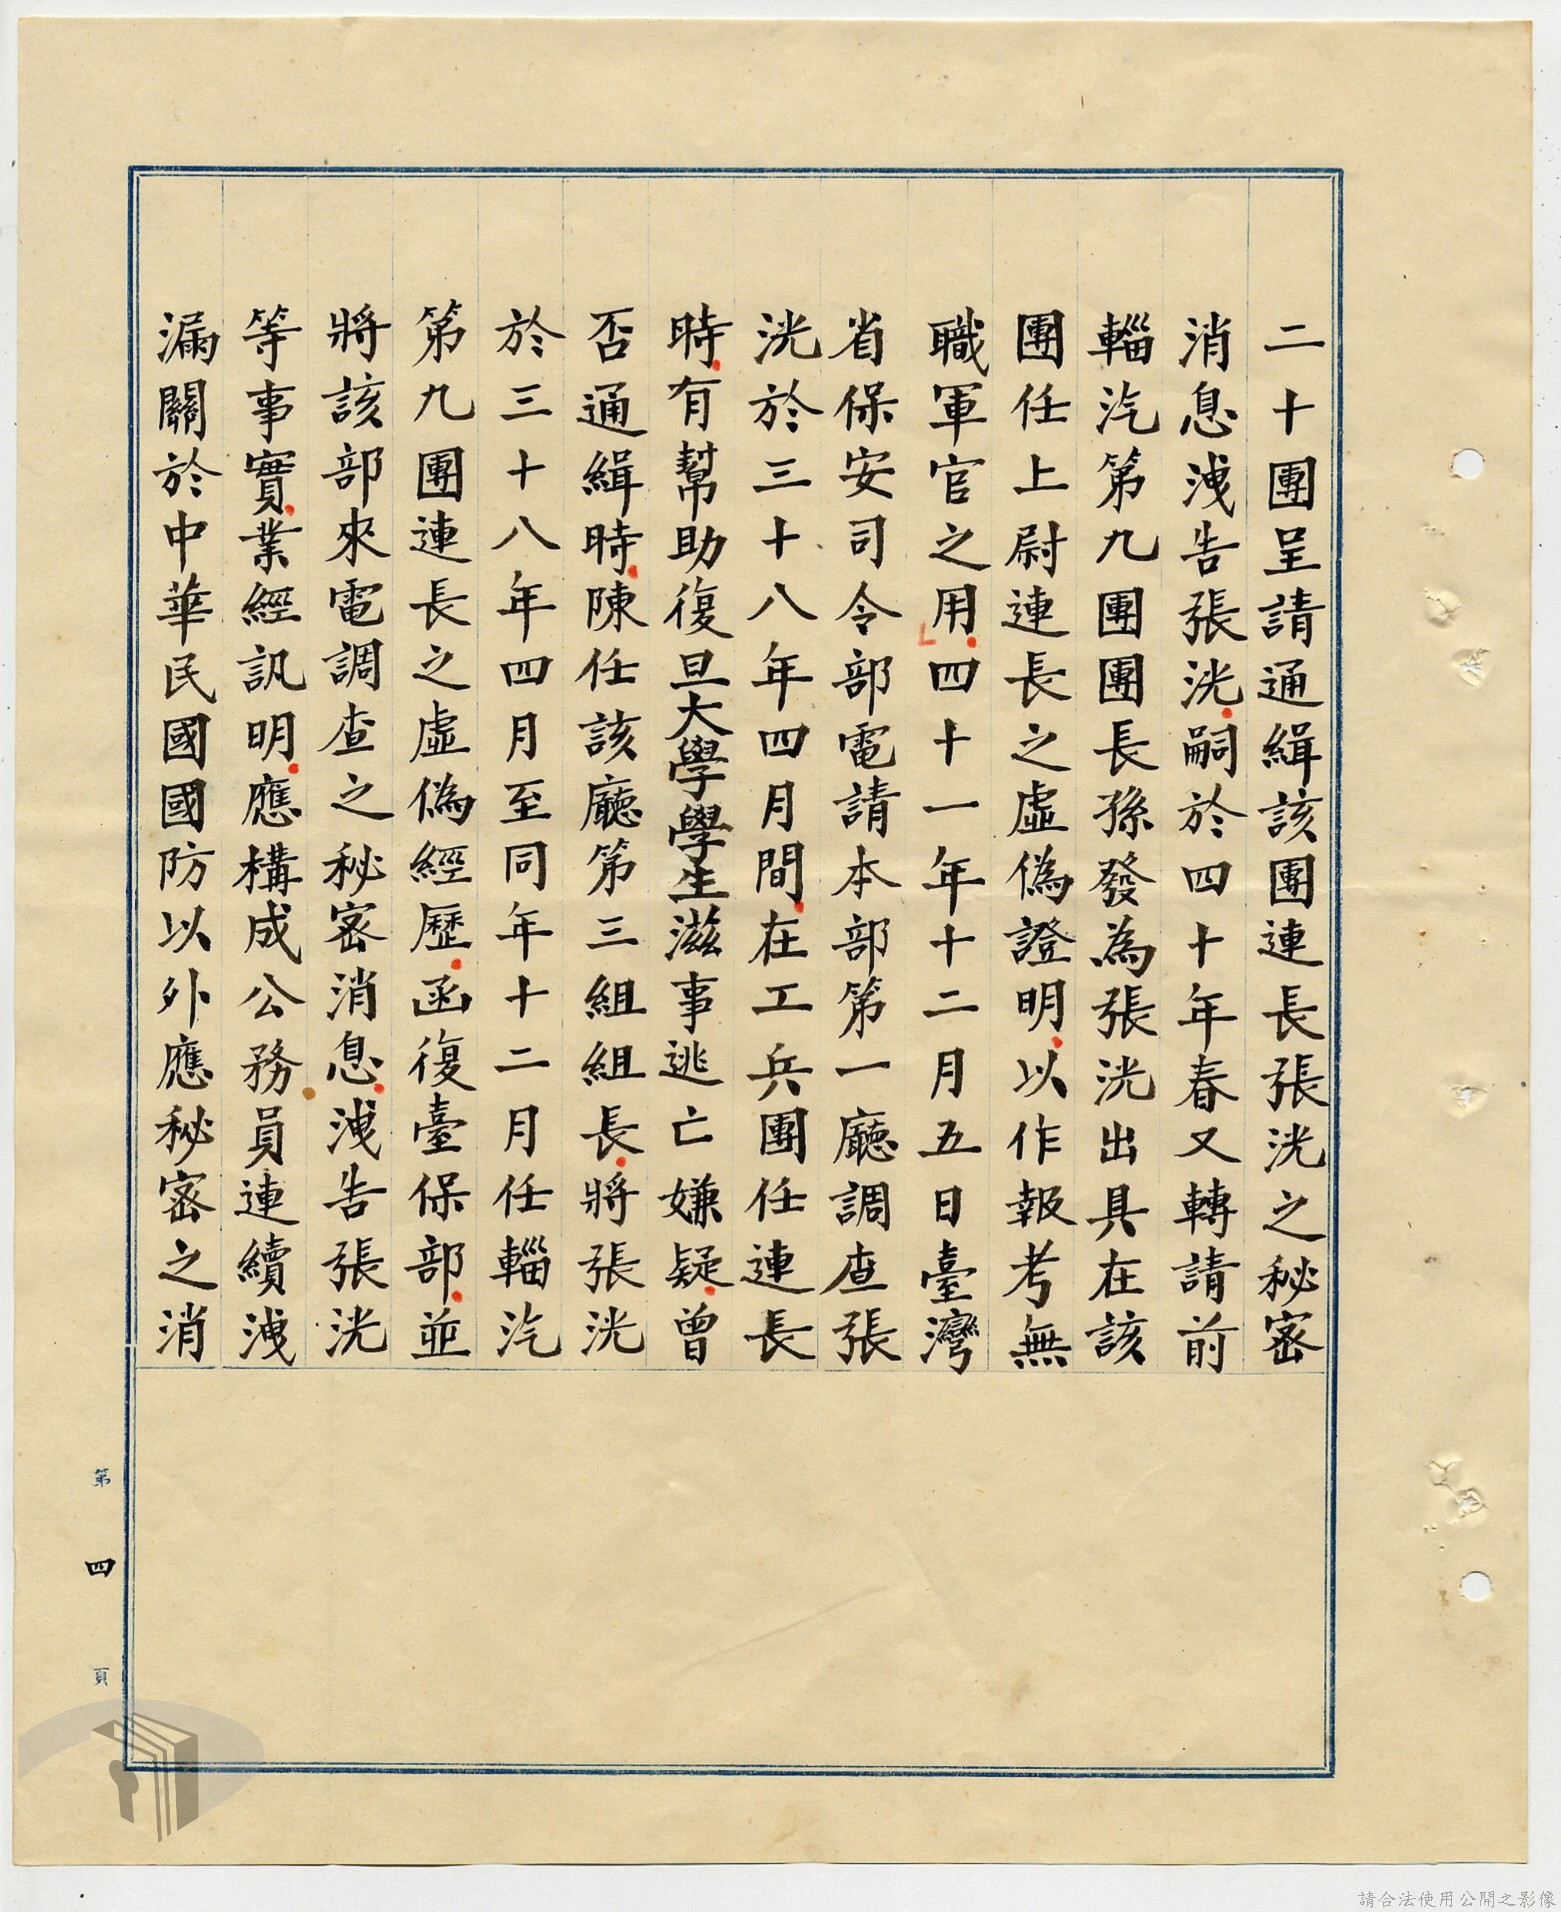 二十團呈請通緝該團連長張洸之秘密
消息洩告張洸嗣於四十年春又轉請前
輜汽第九團團長孫發為張洸出具在該
團任上尉連長之虛偽證明以作報考無
職軍官之用四十一年十二月五日臺灣
省保安司令部電請本部第一廳調查張
洸於三十八年四月間在工兵團任連長
時有幫助復旦大學學生滋事逃亡嫌疑曾
否通緝時陳任該廳第三組組長將張洸
於三十八年四月至同年十二月任輜汽
第九團連長之虛偽經歷函復臺保部並
將該部來電調查之秘密消息洩告張洸
等事實業經訊明應構成公務員連續洩
漏關於中華民國國防以外應秘密之消
第四頁
請合法使用公開之影像